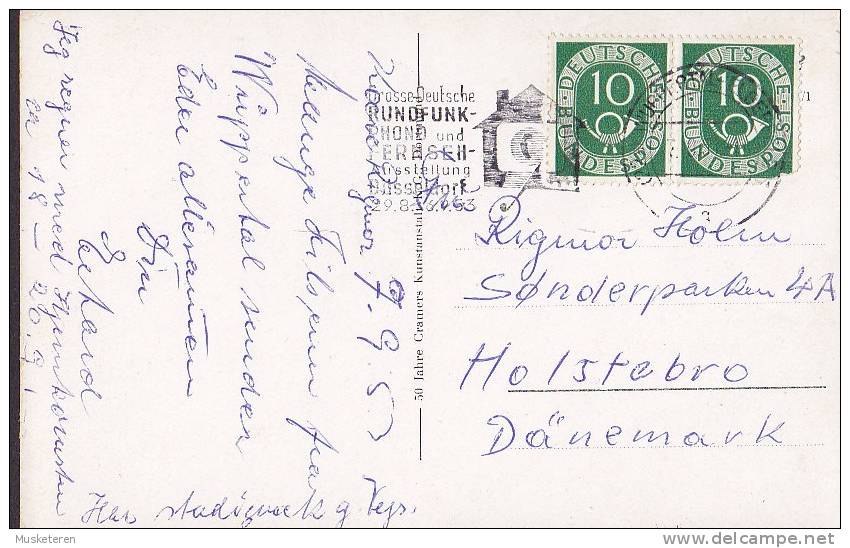 Kære Rigmor 7.9.53
Mange Hilsener fra
Wuppertal sender
Eder allesammen
Din
Jeg regner med Hjemkomsten
ca 18 – 20.9.
Har stadigvæk g. Vejr.
50 Jahre Cramers Kunstanstalt
Grosse Deutsche
RUNDFUNK-
PHONO und
FERNSEH
Ausstellung
Düsseldorf
29.8.-6.9.53
DEUTSCHE
10
BUNDESPOST
DEUTSCHE
10
BUNDESPOST
Rigmor Holm
Sønderparken 4A
Holstebro
Dänemark
Musketeren
delcampe.net